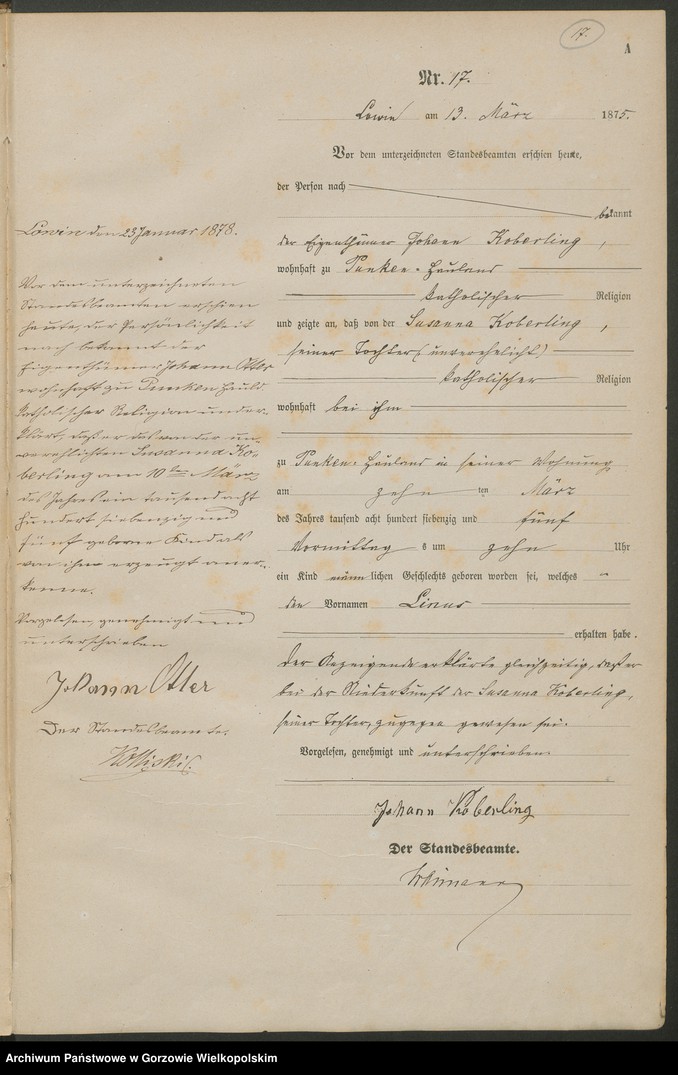 17.
A
Nr. 17.
Lowin am 13. März 1875.
Vor dem unterzeichneten Standesbeamten erschien heute,
der Person nach
bekannt
der Eigenthümer Johann Koberling,
wohnhaft zu Punken-Hauland
katholischer Religion
und zeigte an, daß von der Susanna Koberling,
seiner Tochter (unverehelicht)
katholischer Religion
wohnhaft bei ihm
zu Punken-Hauland in seiner Wohnung
am zehn ten März
des Jahres tausend acht hundert siebenzig und fünf
Vormittag s um zehn Uhr
ein Kind männlichen Geschlechts geboren worden sei, welches
den Vornamen Linus
erhalten habe.
Der Anzeigende erklärte gleichzeitig, daß er
bei der Niederkunft der Susanna Koberling,
seiner Tochter, zugegen gewesen sei.
Vorgelesen, genehmigt und unterschrieben
Johann Koberling
Der Standesbeamte.
Lowin den 23 Januar 1878.
Vor dem unterzeichneten
Standesbeamten erschien
heute, der Persönlichkeit
nach bekannt der
Eigenthümer Johann Otter
wohnhaft zu Punken Hauld.
katholischer Religion und er-
klärt, daß er das von der un-
verehlichten Susanna Ko-
berling am 10ten März
des Jahres ein tausend acht
hundert siebenzig und
fünf geborene Kind als
von ihm erzeugt aner-
kenne.
Vorgelesen, genehmigt und
unterschrieben
Johann Otter
Der Standesbeamte.
Archiwum Państwowe w Gorzowie Wielkopolskim